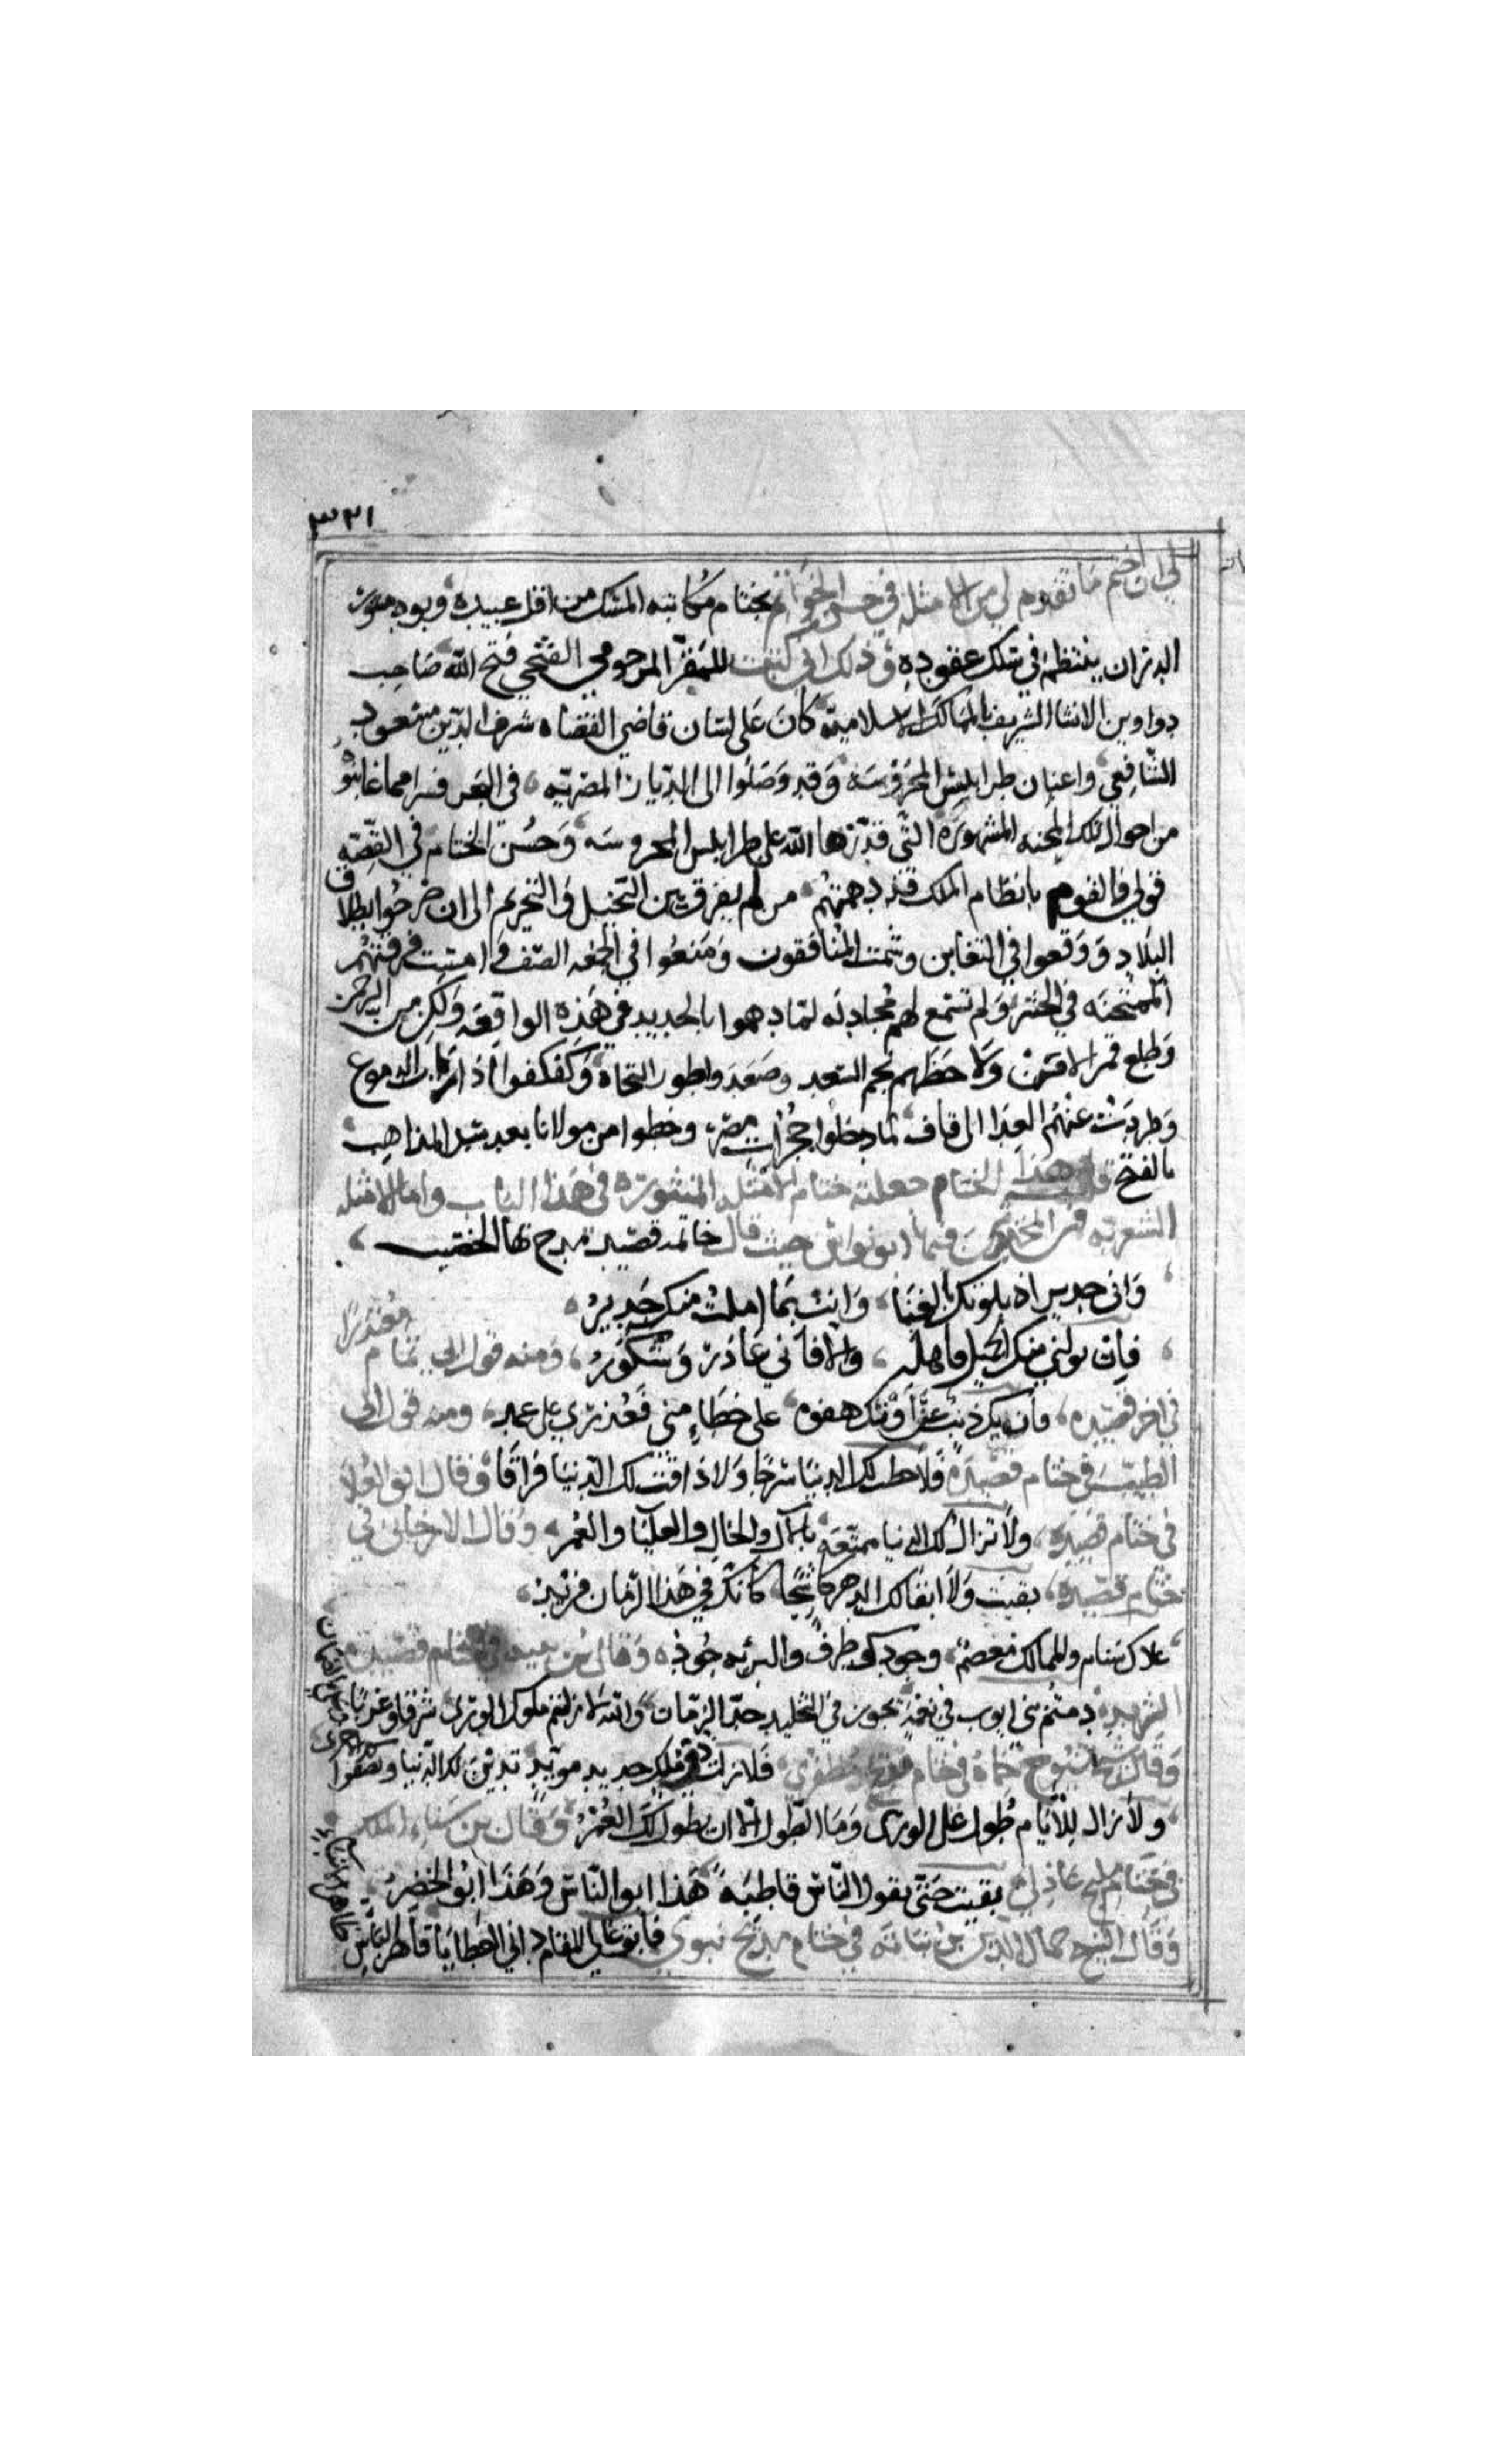 ٣٢١
لي ان اختم ما تقدم لي من الامثله في حسن الخواتم بختام مكاتبه المسك من اقل عبيده وبود منثور
الدر ان ينتظم في سلك عقوده وذلك اني كتبت للمقر المرحومي الفتحي فتح الله صاحب
دواوين الانشا الشريف بالممالك الاسلامية كان على لسان قاضي القضاه شرف الدين مسعود
الشافعي واعيان طرابلس المحروسه وقد وصلوا الى الديار المصريه في البحر فرارا مما عاينوه
من احوال تلك المحنه المشهورة التي قدرها الله على طرابلس المحروسه وحسن الختام في القصه
قولي فالقوم يا نظام الملك قد دهمتهم من لم يفرق بين التحليل والتحريم الى ان صرحوا بطلاق
البلاد ووقعوا في التغابن وشمت المنافقون ومنعوا في الجمعه الصف وامست فرقتهم
الممتحنه في الحشر ولم تسمع لهم مجادله لما دهموا بالحديد في هذه الواقعه ولكن من الرحمن
وطلع قمر الاقتران ولاحظهم نجم السعد وصعدوا طور النجاة وكفكفوا ذاريات الدموع
وطردت عنهم العدا الى قاف لما دخلوا حجرات مصر وحظوا من مولانا بعد سبل المذاهب
بالفتح هذا الختام جعلته ختام الامثله المنثورة في هذا الباب واما الامثله
الشعريه فمن المخترعين فيها ابو نواس حيث قال خاتمة قصيد مدح بها الخصيب
واني جدير اذ بلوتك بالغنا وانت بما املت منك جدير
فان تولني منك الجميل فاهله والا فاني عاذر وشكور ومنه قول ابي تمام معتذرا
في اخر قصيده فان يك ذنب عن او تك هفوه على خطاء مني فعذري على عمد ومنه قول ابي
الطيب في ختام قصيدة فلا حطت لك الدنيا سرجا ولا ذاقت لك الدنيا فراقا وقال ابو العلا
في ختام قصيده ولا تزال لك الدنيا ممتعه بالآل والحال والعليا والعمر وقال الارجاني في
ختام قصيده بقيت ولا ابقا لك الدهر كاشحا كانك في هذا الزمان فريد
علاك سنام وللممالك معصم وجودك طرف والبريه جود وقال بن في ختام قصيدته
دمتم بني ايوب في نعمة تجوز في التخليد حد الزمان والله لا زلتم ملوك الورى شرقا وغربا وعلى الضمان
وقال شيخ شيوخ حماة في ختام مدح مظفري فلا زلت في ملك جديد مؤيد تدين لك الدنيا وتصفوا لك الاخرى
ولا زال للايام طول على الورى وما الطول الا ان يطول لك العمر وقال بن سناء الملك
في ختام مدح عادلي بقيت حتى يقول الناس قاطبه هذا ابو الناس وهذا ابو الخضر
وقال الشيخ جمال الدين بن نباته في ختام مديح نبوي فابق عالي المقام داني العطايا قاهر الباس